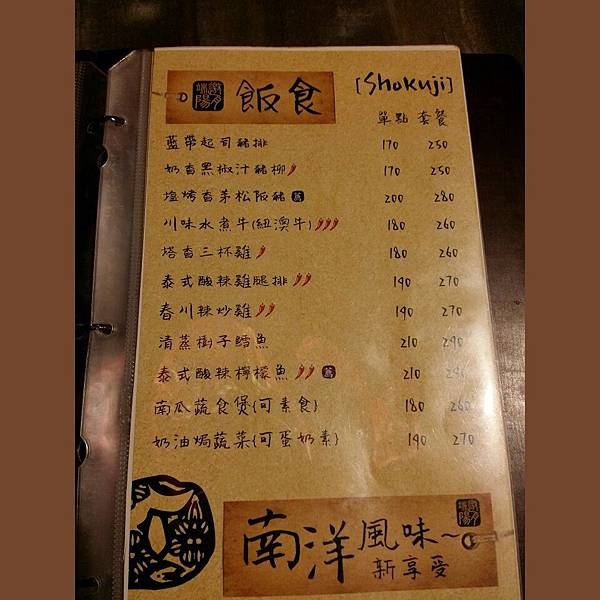 飯食 [Shokuji]
單點 套餐
藍帶起司豬排 170 250
奶香黑椒汁豬柳 170 250
塩烤香茅松阪豬 200 280
川味水煮牛(紐澳牛) 180 260
塔香三杯雞 180 260
泰式酸辣雞腿排 190 270
春川辣炒雞 190 270
清蒸樹子鱈魚 210 290
泰式酸辣檸檬魚 210 290
南瓜蔬食煲(可素食) 180 260
奶油焗蔬菜(可蛋奶素) 190 270
南洋風味~
新享受